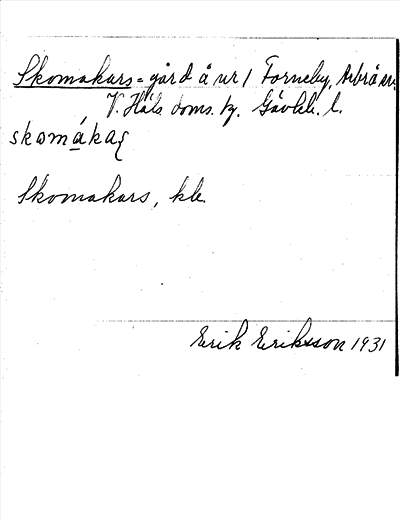 Skomakars = gård å nr 1 Forneby, Arbrå sn.
V. Häls. doms. tg. Gävleb. l.
skomáka{
Skomakars, kle.
Erik Eriksson 1931